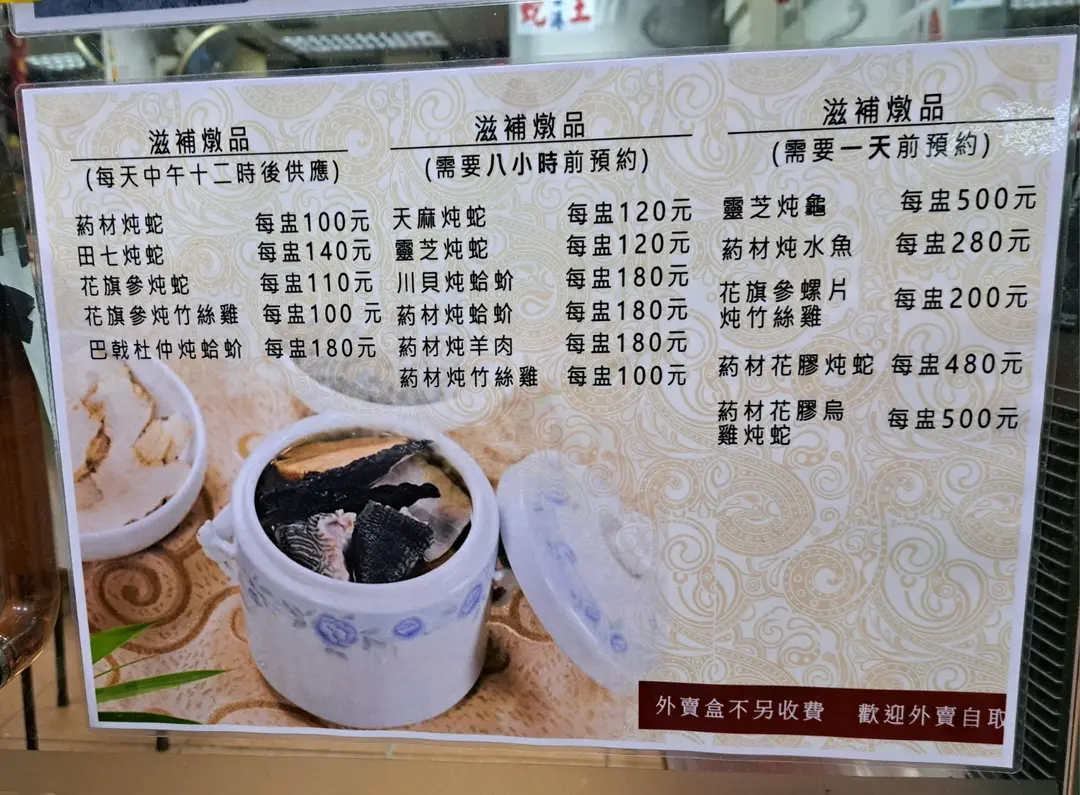 滋補燉品
(每天中午十二時後供應)
葯材炖蛇 每盅100元
田七炖蛇 每盅140元
花旗參炖蛇 每盅110元
花旗參炖竹絲雞 每盅100元
巴戟杜仲炖蛤蚧 每盅180元
滋補燉品
(需要八小時前預約)
天麻炖蛇 每盅120元
靈芝炖蛇 每盅120元
川貝炖蛤蚧 每盅180元
葯材炖蛤蚧 每盅180元
葯材炖羊肉 每盅180元
葯材炖竹絲雞 每盅100元
滋補燉品
(需要一天前預約)
靈芝炖龜 每盅500元
葯材炖水魚 每盅280元
花旗參螺片
炖竹絲雞 每盅200元
葯材花膠炖蛇 每盅480元
葯材花膠烏
雞炖蛇 每盅500元
外賣盒不另收費 歡迎外賣自取